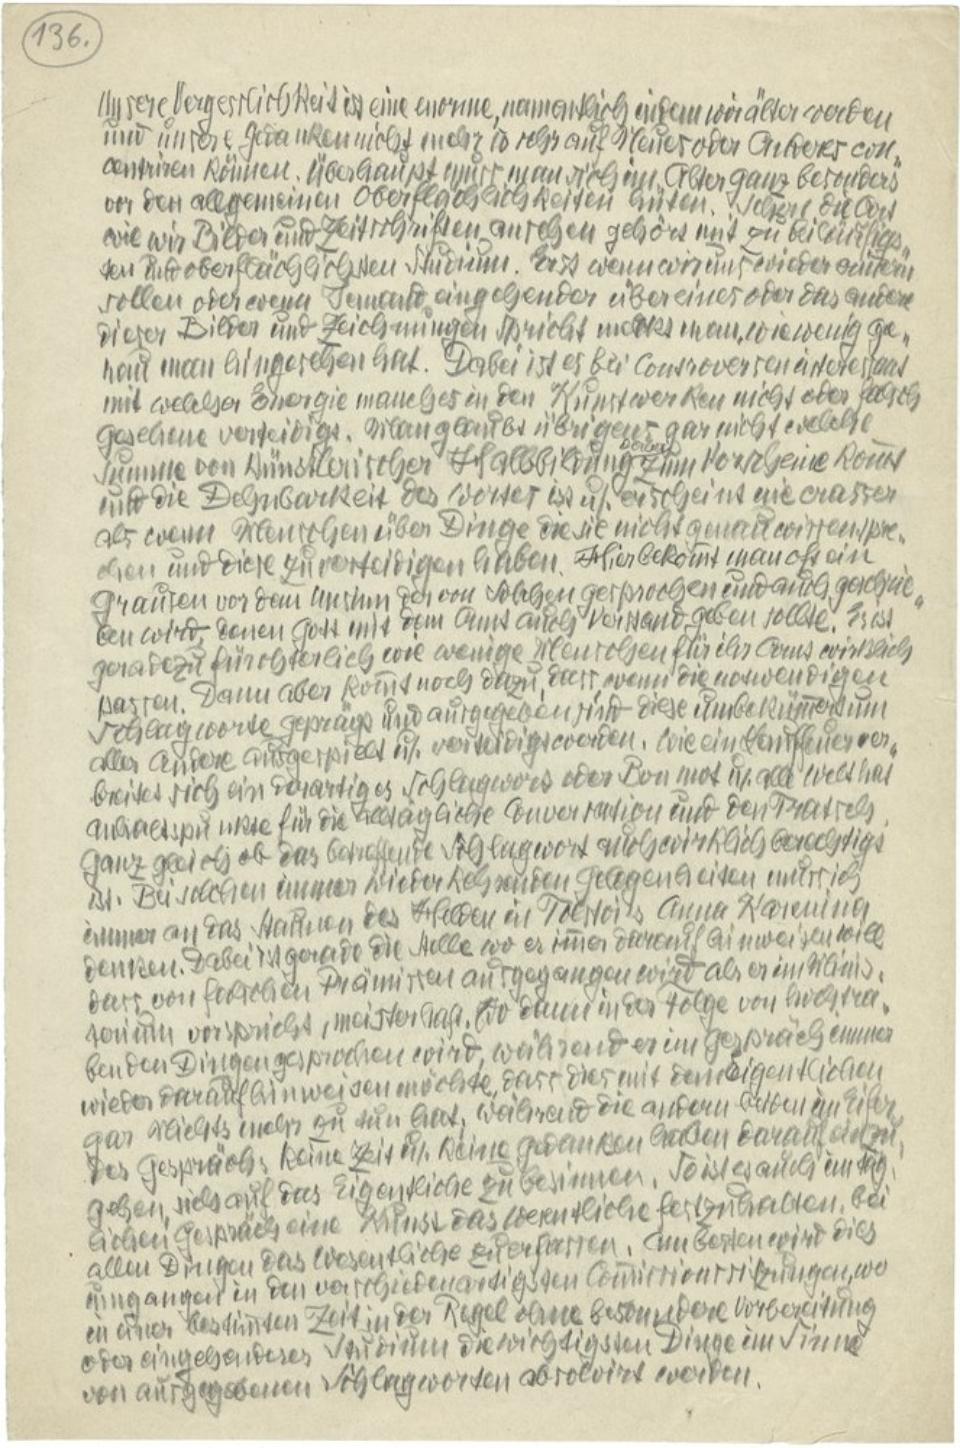 136.
Unsere Vergesslichkeit ist eine enorme, namentlich indem wir älter werden
und unsere Gedanken nicht mehr so sehr auf Neues oder Anderes con„
centriren können. Überhaupt muss man sich im Alter ganz besonders
vor den allgemeinen Oberflächlichkeiten hüten. Schon die Art
wie wir Bilder und Zeitschriften ansehen gehört mit zu beiläufigs„
ten und oberflächlichsten Studium. Erst wenn wir uns wieder erinnern
sollen oder wenn Jemand eingehender über eines oder das andere
dieser Bilder und Zeichnungen spricht merkt man, wie wenig ge„
nau man hingesehen hat. Dabei ist es bei Controversen interessant
mit welcher Energie manches in den Kunstwerken nicht oder falsch
Gesehene verteidigt. Man glaubt übrigens gar nicht welche
Summe von künstlerischer Halbbildung dabei zum Vorscheine kom̅t
und die Dehnbarkeit des Wortes ist u. erscheint nie crasser
als wenn Menschen über Dinge die sie nicht genau wissen spre„
chen und diese zu verteidigen haben. Hier bekom̅t man oft ein
Grausen vor dem Unsinn der von Solchen gesprochen und auch geschrie„
ben wird, denen Gott mit dem Amt auch Verstand geben sollte. Es ist
geradezu fürchterlich wie wenige Menschen für ihr Amt wirklich
passen. Dann aber kom̅t noch dazu, dass, wenn die notwendigen
Schlagworte geprägt und ausgegeben sind diese unbeküm̅ert um
alles Andere ausgespielt u. verteidigt werden. Wie ein Lauffeuer ver„
breitet sich ein derartiges Schlagwort oder Bon mot u. alle Welt hat
Anhaltspunkte für die alltägliche Conversation und den Tratsch,
ganz gleich ob das betreffende Schlagwort auch wirklich berechtigt
ist. Bei solchen immer wiederkehrenden Gelegenheiten muss ich
immer an das Staunen des Helden in Tolstois Anna Karenina
denken. Dabei ist gerade die Stelle wo er im̅er darauf hinweisen will
dass von falschen Prämissen ausgegangen wird als er im Minis„
terium vorspricht, meisterhaft. Wo dann in der Folge von hochtra„
benden Dingen gesprochen wird, während er im Gespräch immer
wieder darauf hinweisen möchte, dass dies mit dem Eigentlichen
gar Nichts mehr zu tun hat, während die andern im Eifer
des Gesprächs keine Zeit u. keine Gedanken haben darauf einzu„
gehen, sich auf das Eigentliche zu besinnen. So ist es auch im täg„
lichen Gespräch eine Kunst das Wesentliche festzuhalten, bei
allen Dingen das Wesentliche zu erfassen. Am besten wird dies
umgangen in den verschiedenartigsten Com̅issionssitzungen, wo
in einer bestim̅ten Zeit in der Regel ohne besondere Vorbereitung
oder eingehenderes Studium die wichtigsten Dinge im Sinne
von ausgegebenen Schlagworten absolvirt werden.